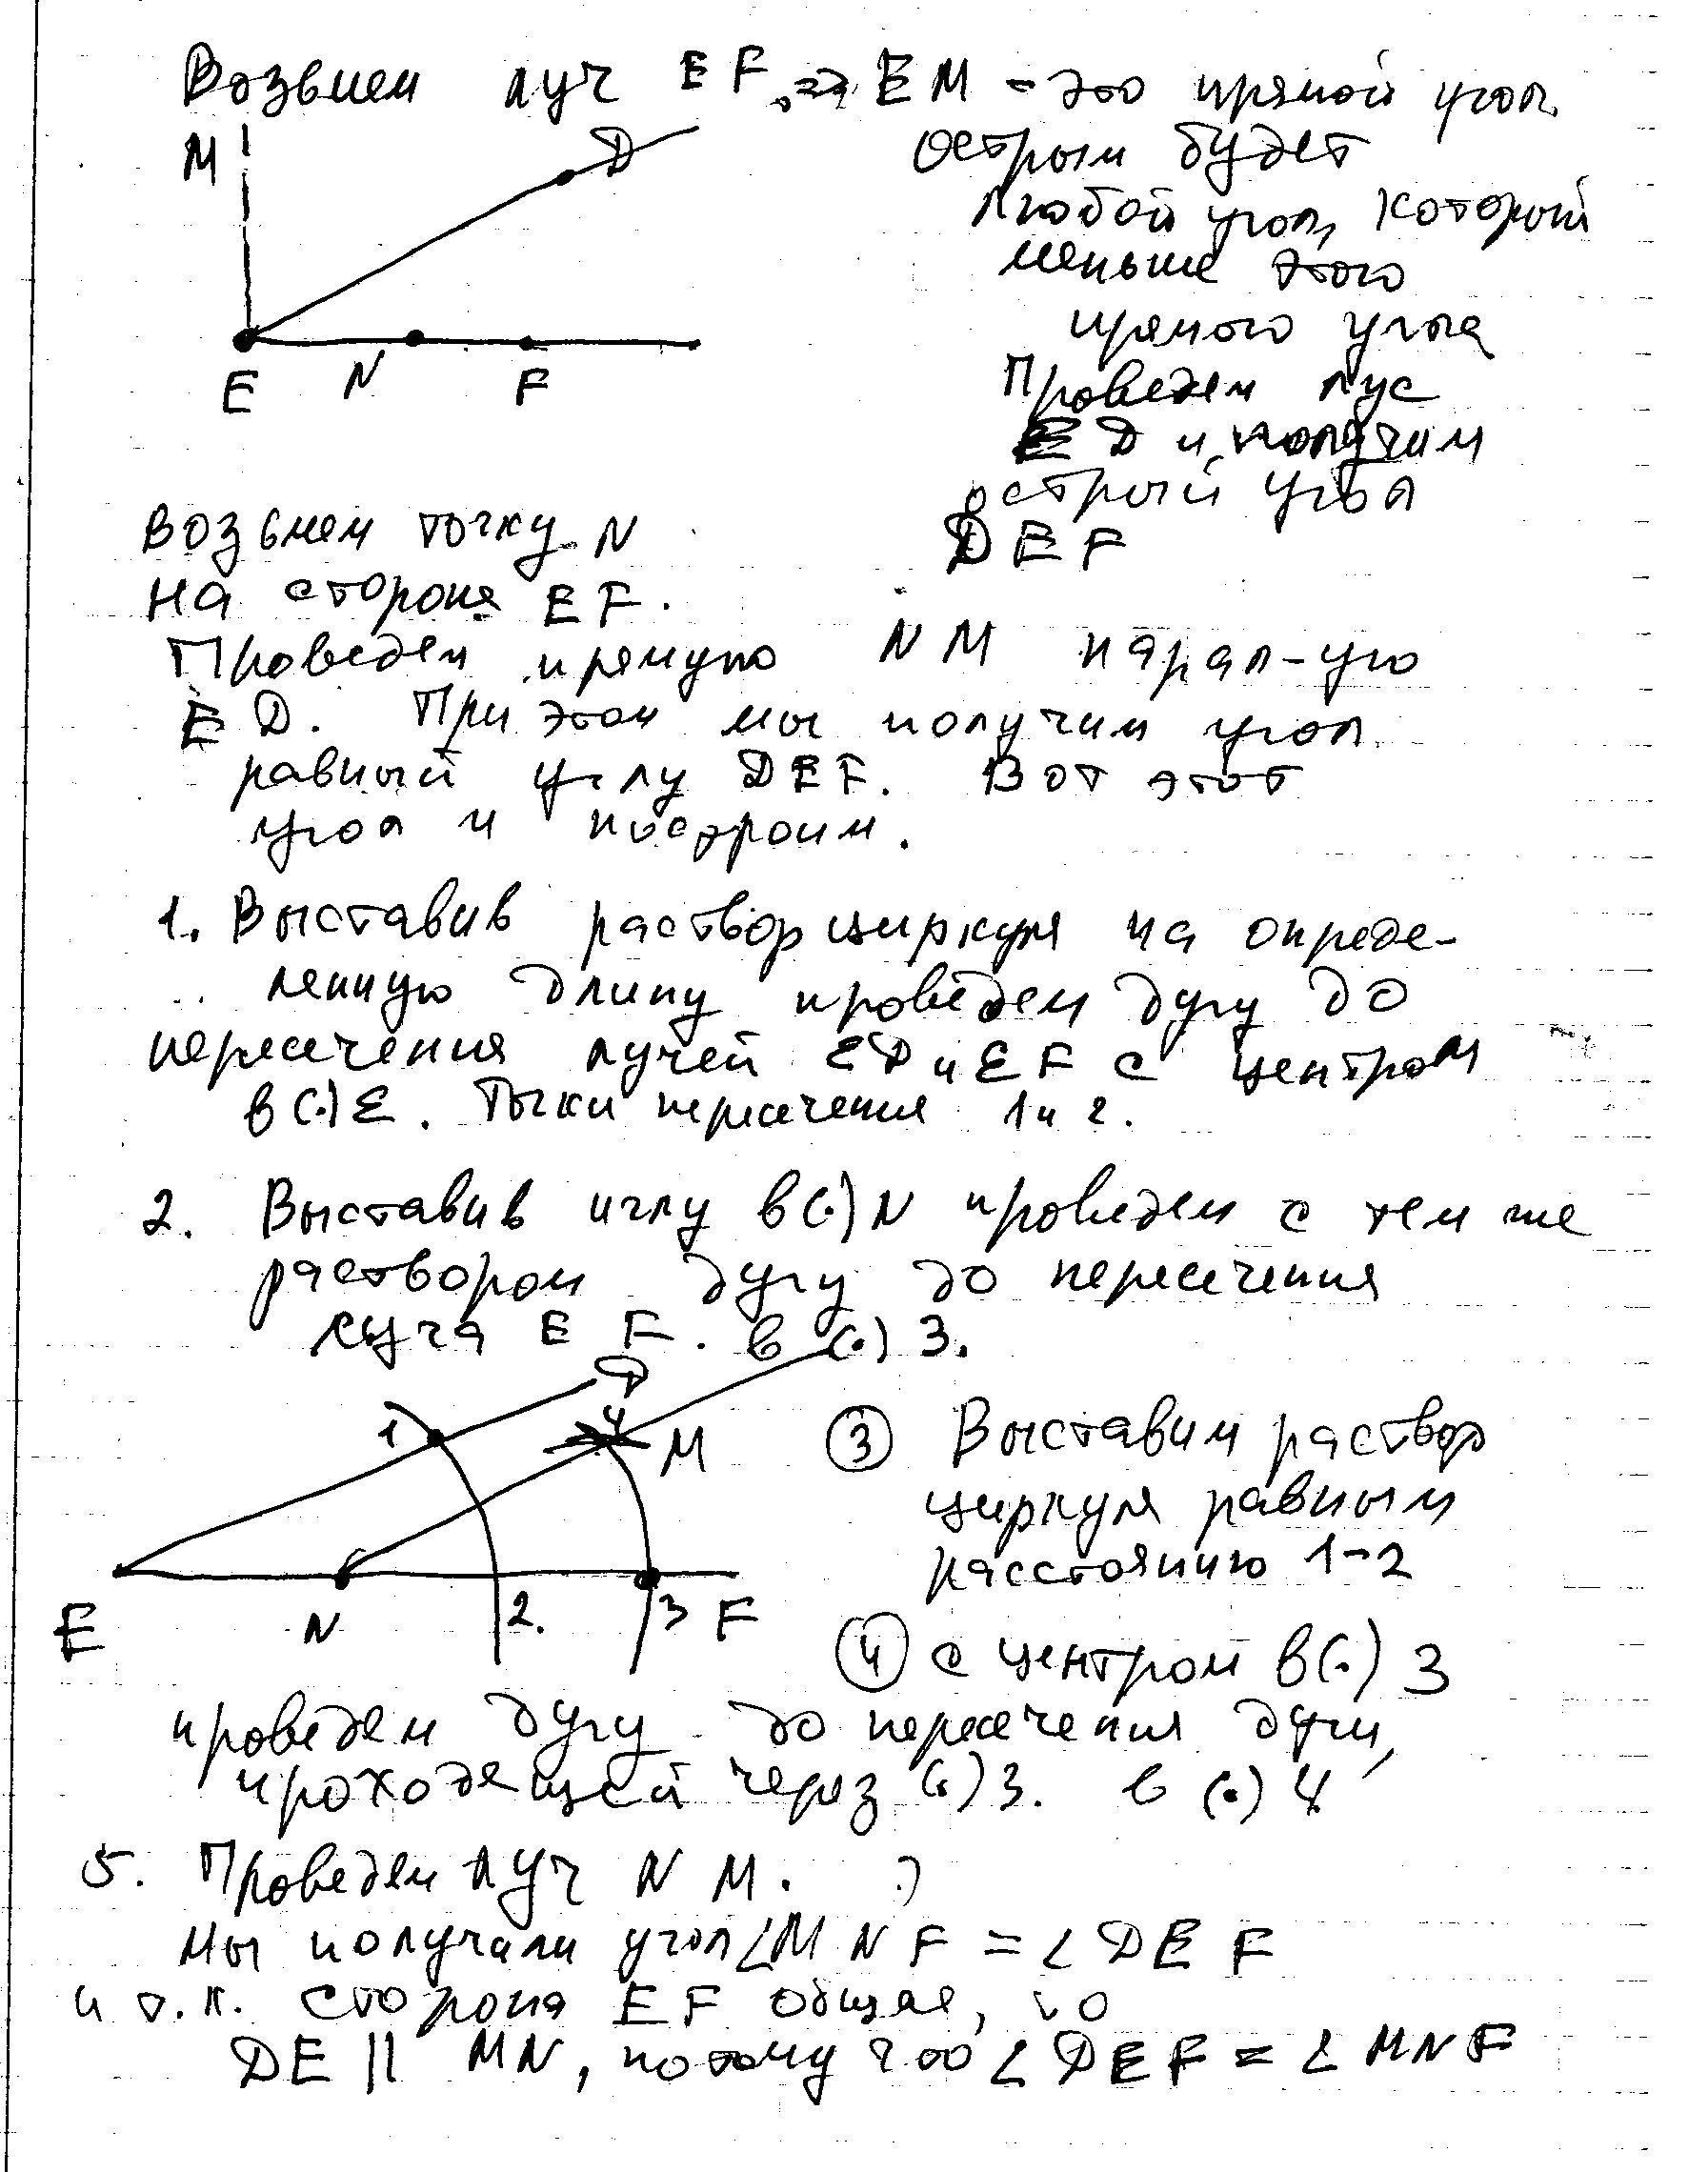 Возьмем луч EF ⇒ EM - это прямой угол.
Острым будет
любой угол, который
меньше этого
прямого угла
Проведем луч
ED и получим
острый угол
DEF
M
D
E
N
F
Возьмем точку N
на стороне EF.
Проведем прямую NM парал-ую
ED. При этом мы получим угол
равный углу DEF. Вот этот
угол и построим.
1. Выставив раствор циркуля на опреде-
ленную длину проведем дугу до
пересечения лучей ED и EF с центром
в (·) E. Точки пересечения 1 и 2.
2. Выставив иглу в (·) N проведем с тем же
раствором дугу до пересечения
луча EF. в (·) 3.
D
1
4
M
E
N
2.
3
F
③ Выставим раствор
циркуля равным
расстоянию 1-2
④ с центром в (·) 3
проведем дугу до пересечения дуги,
проходящей через (·) 3. в (·) 4
5. Проведем луч NM.
Мы получили угол ∠MNF = ∠DEF
и т.к. сторона EF общая, то
DE || MN, потому что ∠DEF = ∠MNF